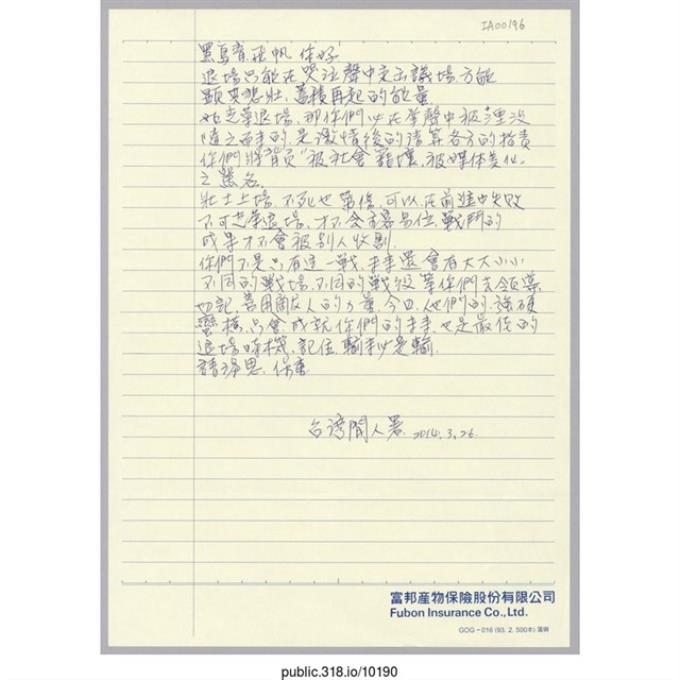 IA00196
黑島青、飛帆 你好
退場只能在哭泣聲中走出議場方能
顯其悲壯,蓄積再起的能量
如光榮退場,那你們必在掌聲中被淹沒
隨之而來的,是激情後的清算各方的指責
你們將背負"被社會寵壞,被媒體美化"
之罵名。
壯士上場,不死也重傷,可以在前進中失敗
不可光榮退場,才不會主客易位,戰鬥的
成果才不會被別人收割。
你們不是只有這一戰,未來還會有大大小小
不同的戰場,不同的戰役等你們去領導
切記,善用敵人的力量,今日,他們的強硬
蠻橫,只會成就你們的未來,也是最佳的
退場時機,記住,輸未必是輸。
請深思,保重
台灣閒人署 2014.3.26.
富邦產物保險股份有限公司
Fubon Insurance Co.,Ltd.
GOG-016 (93. 2. 500本)
public.318.io/10190